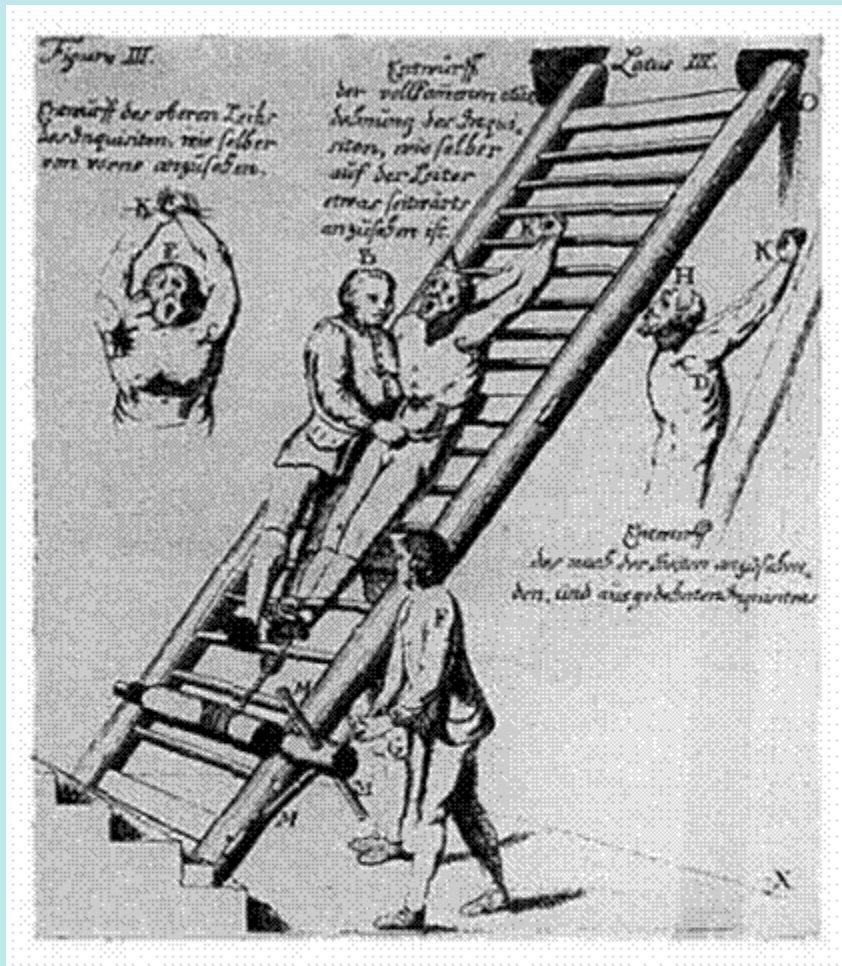 Figura III.
Latus III.
Entwurff des oberen Leibs
des Inquisiten, wie selber
von vorne anzusehen.
Entwurff
der vollkommenen aus
dehnung des Inqui-
siten, wie selber
auf der Leiter
etwas seitwärts
anzusehen ist.
O
K
E
C
B
K
H
K
C
D
F
G
M
M
M
X
Entwurff
des nach der Seiten anzusehen,
den, und ausgedehnten Inquisitens